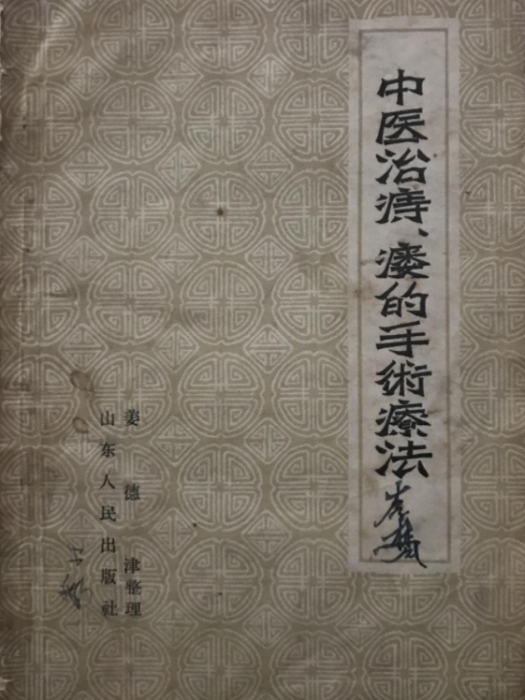 中医治痔、瘘的手術療法
姜德津整理
山东人民出版社